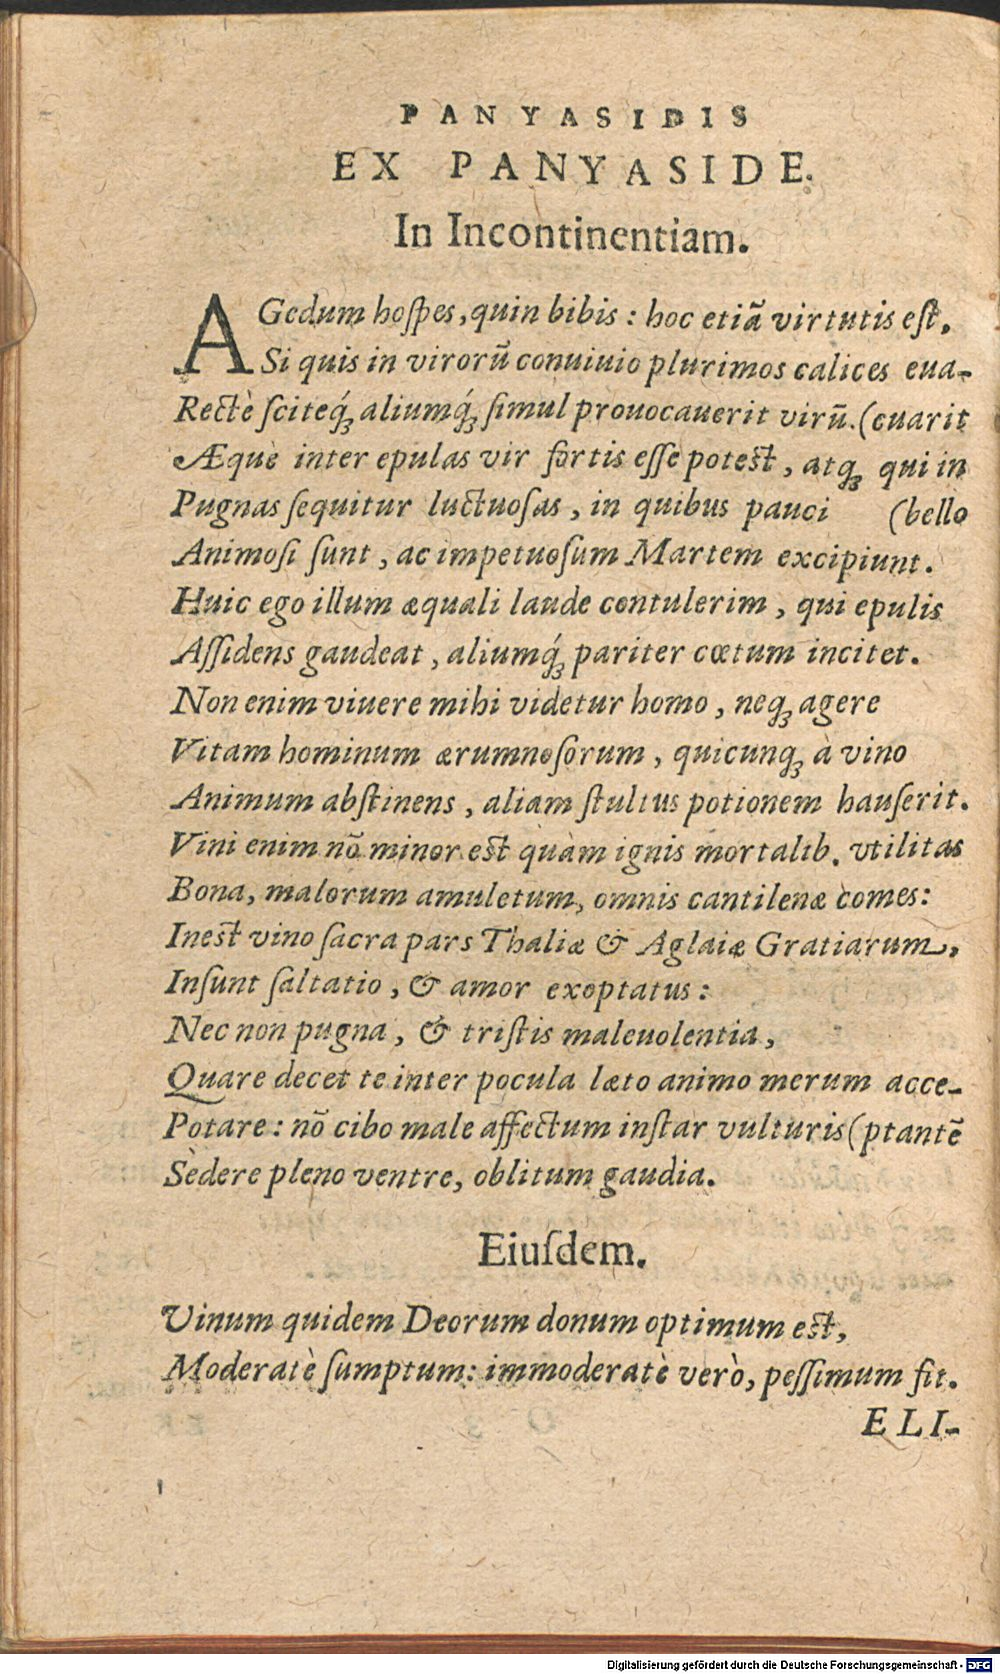 PANYASIDIS
EX PANYASIDE.
In Incontinentiam.
AGedum hoſpes, quin bibis : hoc etiã virtutis eſt,
Si quis in virorũ conuiuio plurimos calices eua-
Rectè ſciteq́ꝫ aliumq́ꝫ ſimul prouocauerit virũ. (cuarit
Æque inter epulas vir fortis eſſe potest, atqꝫ qui in
Pugnas ſequitur luctuoſas, in quibus pauci (bello
Animoſi ſunt, ac impetuoſum Martem excipiunt.
Huic ego illum æquali laude contulerim, qui epulis
Aſſidens gaudeat, aliumq́ꝫ pariter cœtum incitet.
Non enim viuere mihi videtur homo, neqꝫ agere
Vitam hominum ærumnoſorum, quicunqꝫ à vino
Animum abſtinens, aliam ſtultus potionem hauſerit.
Vini enim nõ minor est quàm ignis mortalib. vtilitas
Bona, malorum amuletum, omnis cantilenæ comes:
Inest vino ſacra pars Thaliæ & Aglaiæ Gratiarum,
Inſunt ſaltatio, & amor exoptatus :
Nec non pugna, & triſtis maleuolentia,
Quare decet te inter pocula læto animo merum acce-
Potare : nõ cibo male affectum inſtar vulturis (ptantẽ
Sedere pleno ventre, oblitum gaudia.
Eiuſdem.
Vinum quidem Deorum donum optimum est,
Moderatè ſumptum: immoderatè verò, peſſimum fit.
ELI-
Digitalisierung gefördert durch die Deutsche Forschungsgemeinschaft - DFG